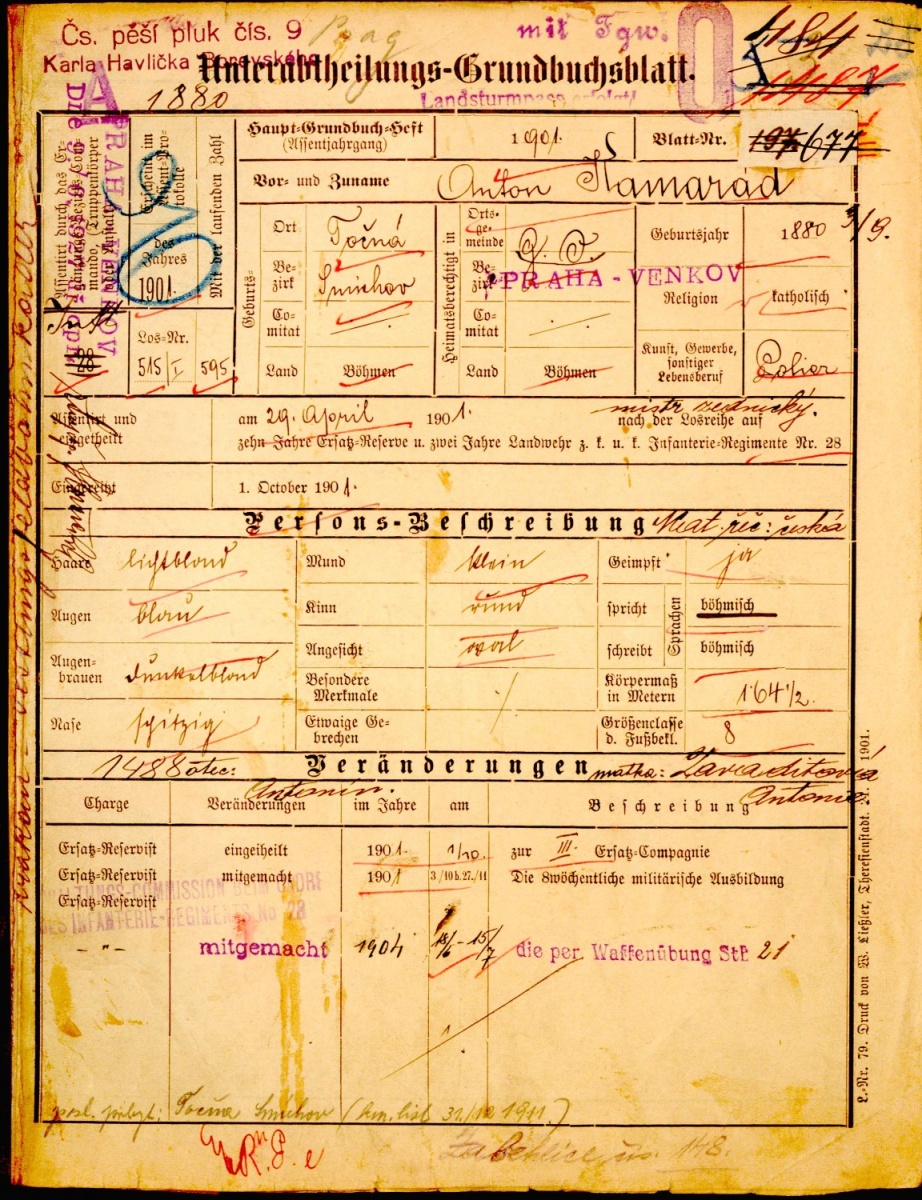 Čs. pěší pluk čís. 9
Karla Havlíčka Borovského
Prag
mit Fgw.
Unterabtheilungs-Grundbuchsblatt.
1880
Landsturmpass erfolgt!
Haupt-Grundbuch-Heft
(Assentjahrgang)
1901.
Blatt-Nr.
197 677
Vor- und Zuname
Anton Kamarád
Assentirt durch das Ergänzungsbezirks-Commando, (Truppenkörper oder Anstalt)
Erscheint im Assent-Protokolle
des Jahres
1901.
Mit der laufenden Zahl
Inft
28
Los-Nr.
515/I
595
Geburts-
Ort
Točná
Bezirk
Smichov
Comitat
Land
Böhmen
Heimatsberechtigt in
Ortsgemeinde
G. O.
Bezirk
PRAHA-VENKOV
Comitat
Land
Böhmen
Geburtsjahr
1880 3/9.
Religion
katholisch
Kunst, Gewerbe, sonstiger Lebensberuf
Polier
mistr zednický.
PRAHA VENKOV
Assentirt und eingetheilt
am 29. April 1901.
nach der Losreihe auf
zehn Jahre Ersatz-Reserve u. zwei Jahre Landwehr z. k. u. k. Infanterie-Regimente Nr. 28
Eingereiht
1. October 1901.
Persons-Beschreibung
Mat. řeč: česká
Haare
lichtblond
Mund
klein
Geimpft
ja
Augen
blau
Kinn
rund
Sprachen
spricht
böhmisch
Angesicht
oval
schreibt
böhmisch
Augenbrauen
dunkelblond
Besondere Merkmale
Körpermaß in Metern
1·64½.
Nase
spitzig
Etwaige Gebrechen
Größenclasse d. Fußbekl.
8
1488 otec: Antonin.
Veränderungen
matka: Antonie
Charge
Veränderungen
im Jahre
am
Beschreibung
Ersatz-Reservist
eingetheilt
1901.
1/10.
zur III. Ersatz-Compagnie
Ersatz-Reservist
mitgemacht
1901
3/10 b. 27./11
Die 8wöchentliche militärische Ausbildung
Ersatz-Reservist
-"-
mitgemacht
1904
18/6 - 15/7
die per. Waffenübung StP. 21
posl. pobyt: Točna Smichov (dom. list 31/12 1911.)
Zaběhlice čís. 148.
L.-Nr. 79. Druck von W. Ließler, Theresienstadt. 1901.